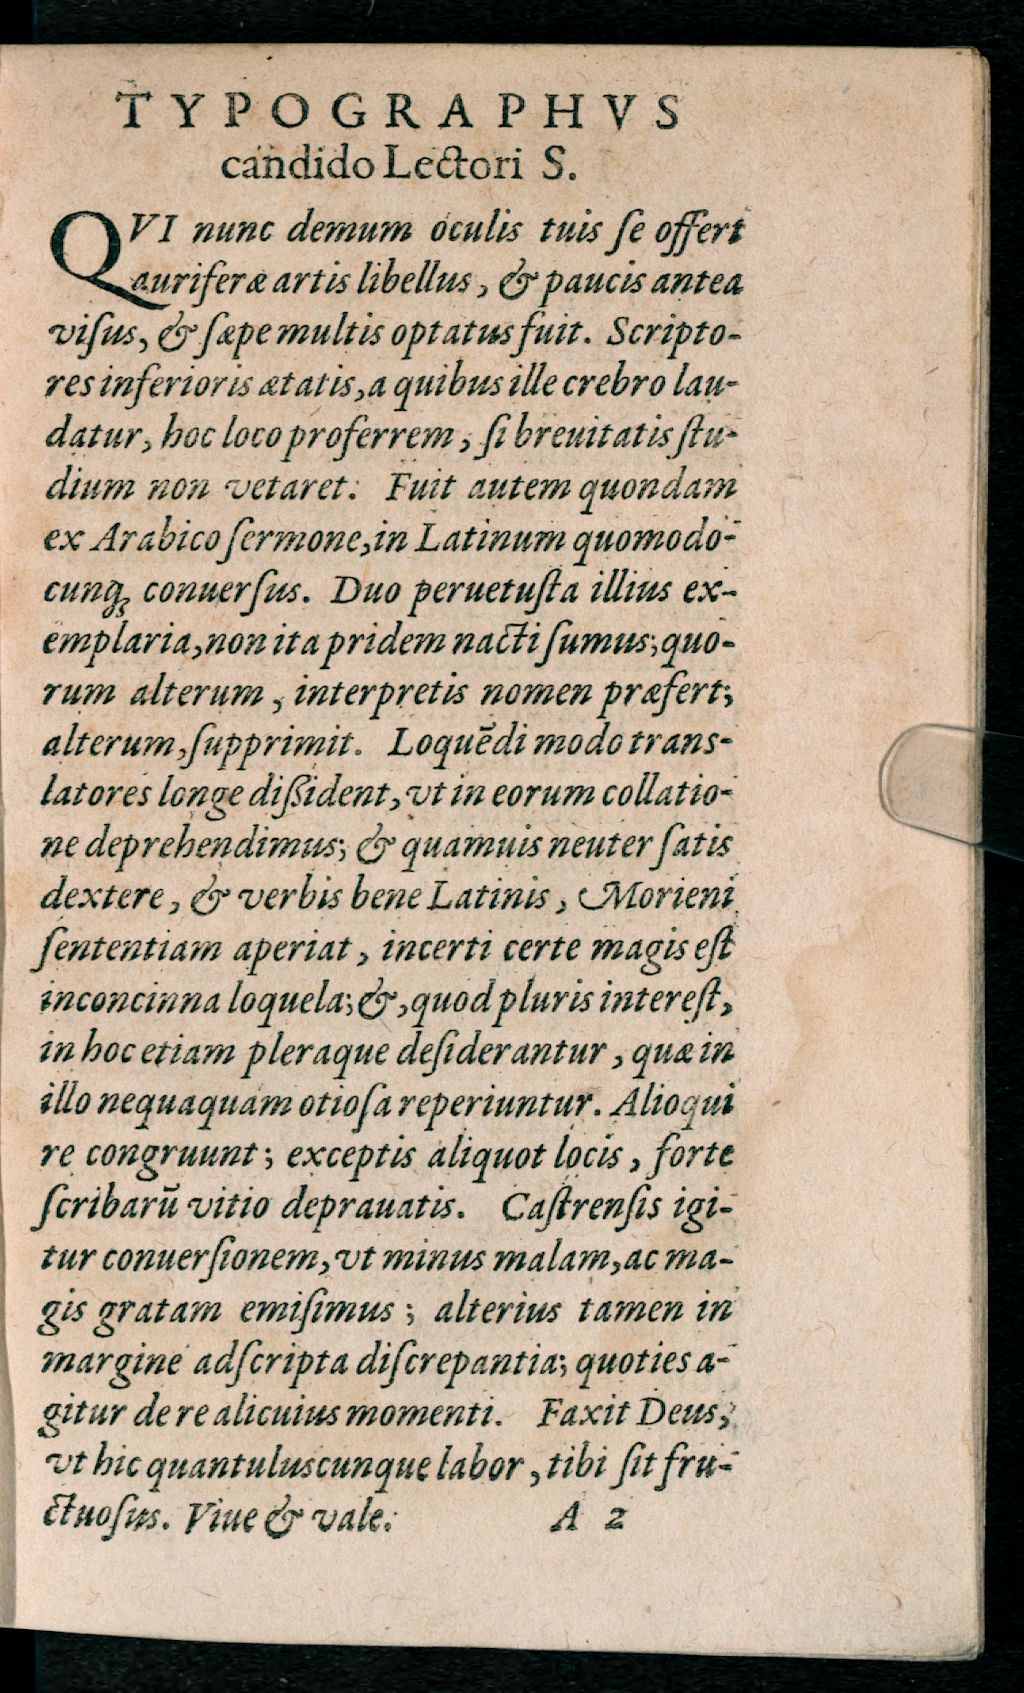 TYPOGRAPHVS
candido Lectori S.
QVI nunc demum oculis tuis ſe offert
auriferæ artis libellus, & paucis antea
viſus, & ſæpe multis optatus fuit. Scripto-
res inferioris ætatis, a quibus ille crebro lau-
datur, hoc loco proferrem, ſi breuitatis ſtu-
dium non vetaret. Fuit autem quondam
ex Arabico ſermone, in Latinum quomodo-
cunqꝫ conuerſus. Duo peruetuſta illius ex-
emplaria, non ita pridem nacti ſumus; quo-
rum alterum, interpretis nomen præfert;
alterum, ſupprimit. Loquēdi modo trans-
latores longe diſsident, vt in eorum collatio-
ne deprehendimus; & quamuis neuter ſatis
dextere, & verbis bene Latinis, Morieni
ſententiam aperiat, incerti certe magis eſt
inconcinna loquela; &, quod pluris intereſt,
in hoc etiam pleraque deſiderantur, quæ in
illo nequaquam otioſa reperiuntur. Alioqui
re congruunt; exceptis aliquot locis, forte
ſcribarū vitio deprauatis. Caſtrenſis igi-
tur conuerſionem, vt minus malam, ac ma-
gis gratam emiſimus; alterius tamen in
margine adſcripta diſcrepantia; quoties a-
gitur de re alicuius momenti. Faxit Deus,
vt hic quantuluscunque labor, tibi ſit fru-
ctuoſus. Viue & vale. A 2